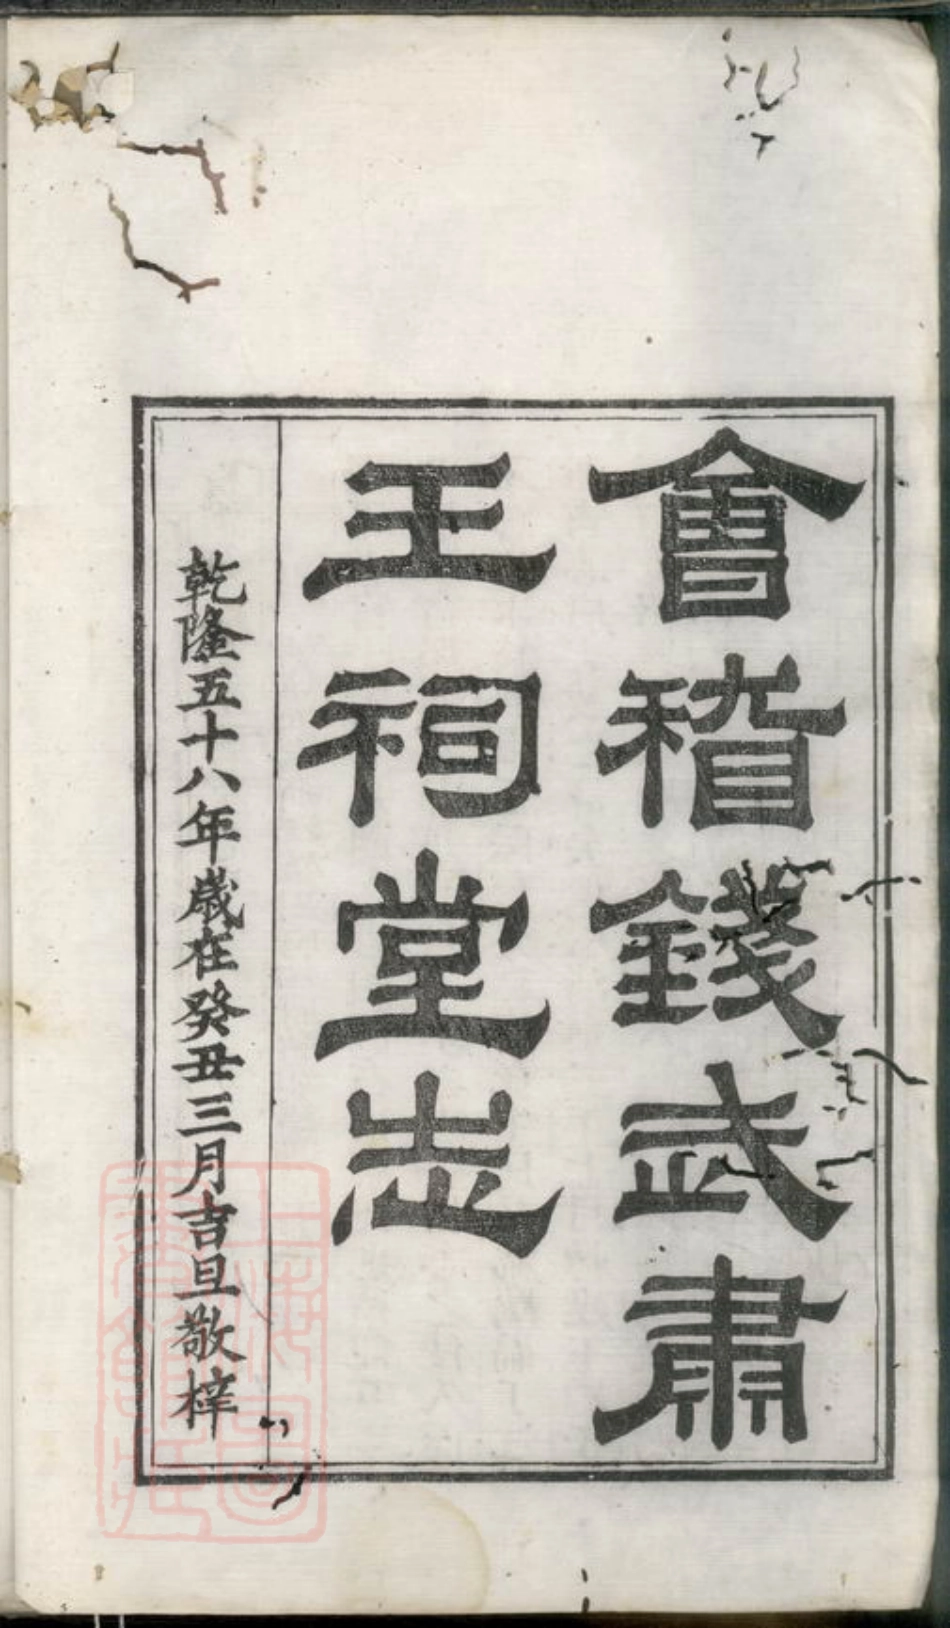 會稽錢武肅
王祠堂志
乾隆五十八年歲在癸丑三月吉旦敬梓
上海圖書館藏